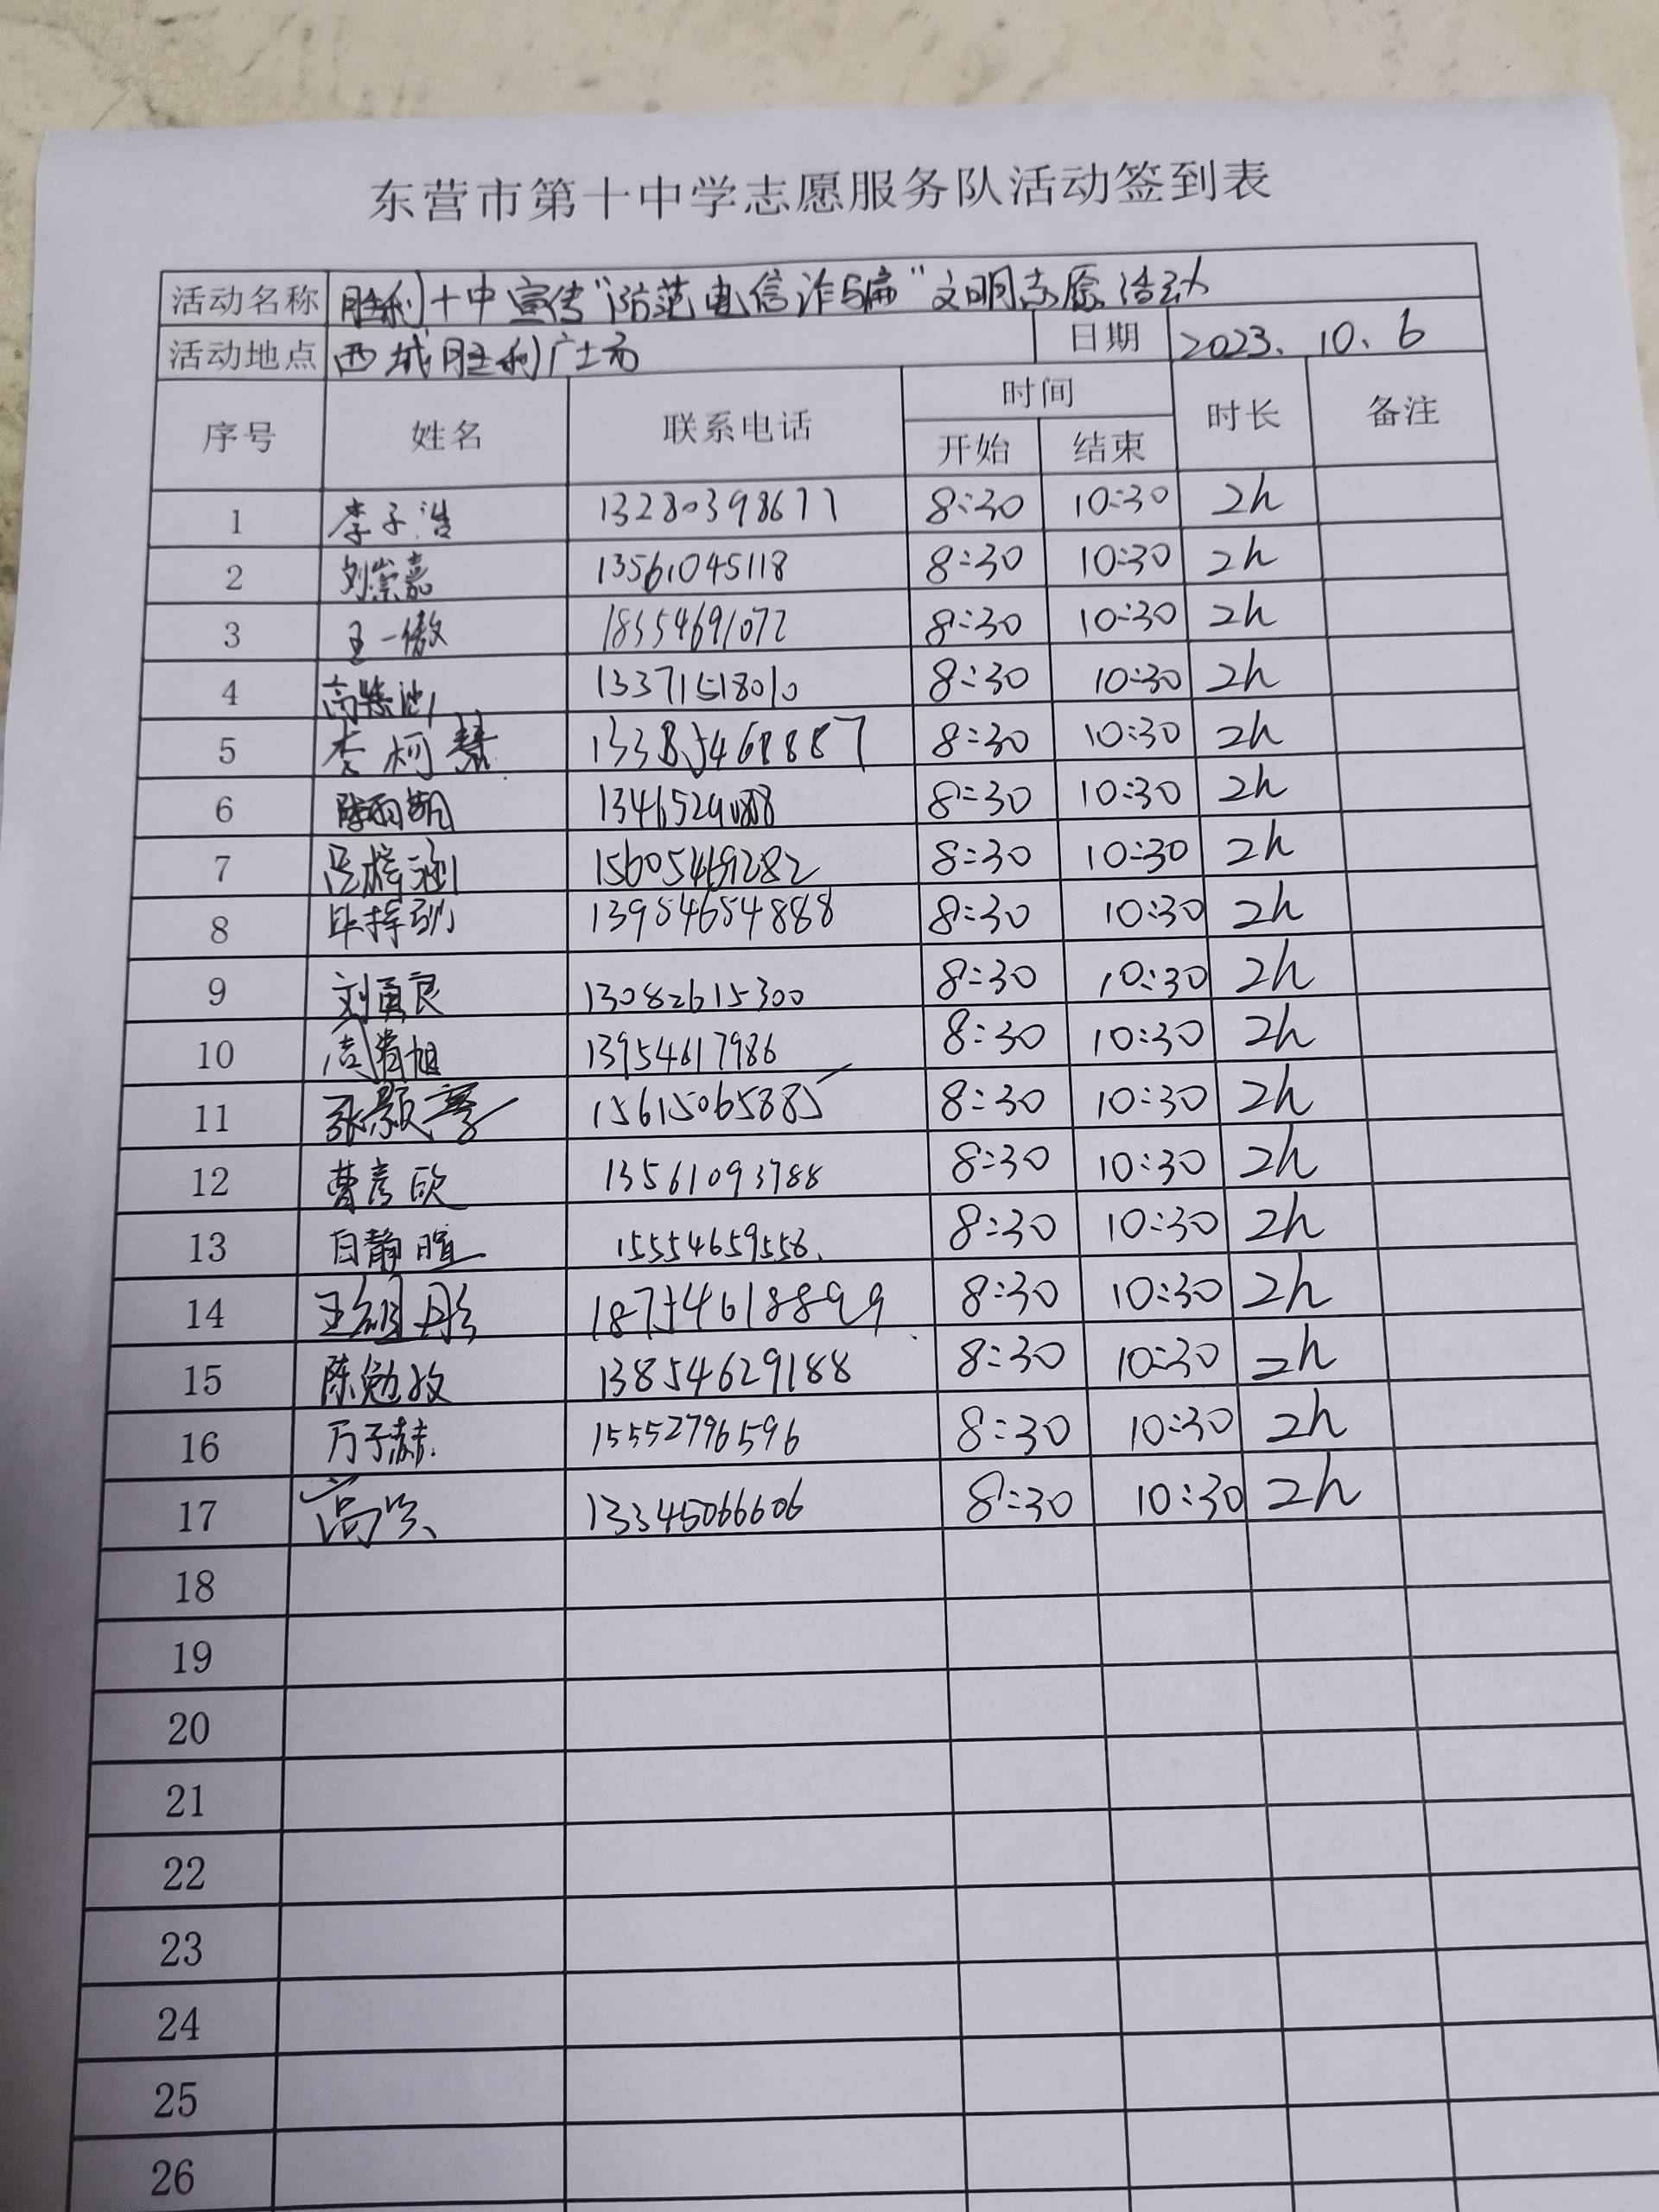 东营市第十中学志愿服务队活动签到表
活动名称 胜利十中宣传“防范电信诈骗”文明志愿活动
活动地点 西城胜利广场 日期 2023.10.6
序号 姓名 联系电话 时间 时长 备注
开始 结束
1 李子浩 13280398677 8:30 10:30 2h
2 刘崇嘉 13561045118 8:30 10:30 2h
3 王一傲 18554691072 8:30 10:30 2h
4 高 13371518010 8:30 10:30 2h
5 李柯慧 8:30 10:30 2h
6 8:30 10:30 2h
7 吕梓涵 15605469282 8:30 10:30 2h
8 13954654888 8:30 10:30 2h
9 刘勇良 13082615300 8:30 10:30 2h
10 13954617986 8:30 10:30 2h
11 张颢 15615065885 8:30 10:30 2h
12 曹彦欣 13561093788 8:30 10:30 2h
13 白静暄 15554659558. 8:30 10:30 2h
14 王 彤 18754618899 8:30 10:30 2h
15 陈勉孜 13854629188 8:30 10:30 2h
16 万子赫. 15552796596 8:30 10:30 2h
17 高 13345066606 8:30 10:30 2h
18
19
20
21
22
23
24
25
26